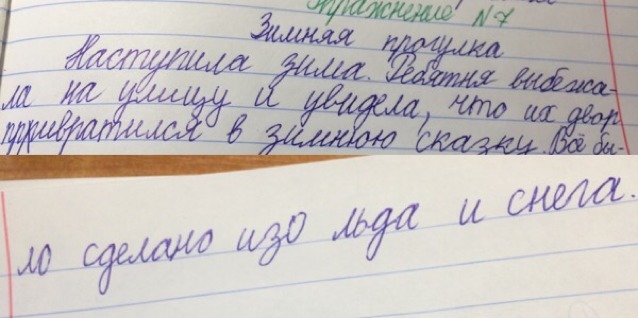 Упражнение №7
Зимняя прогулка
Наступила зима. Ребятня выбежа-
ла на улицу и увидела, что их двор
привратился в зимнюю сказку. Всё бы-
ло сделано изо льда и снега.